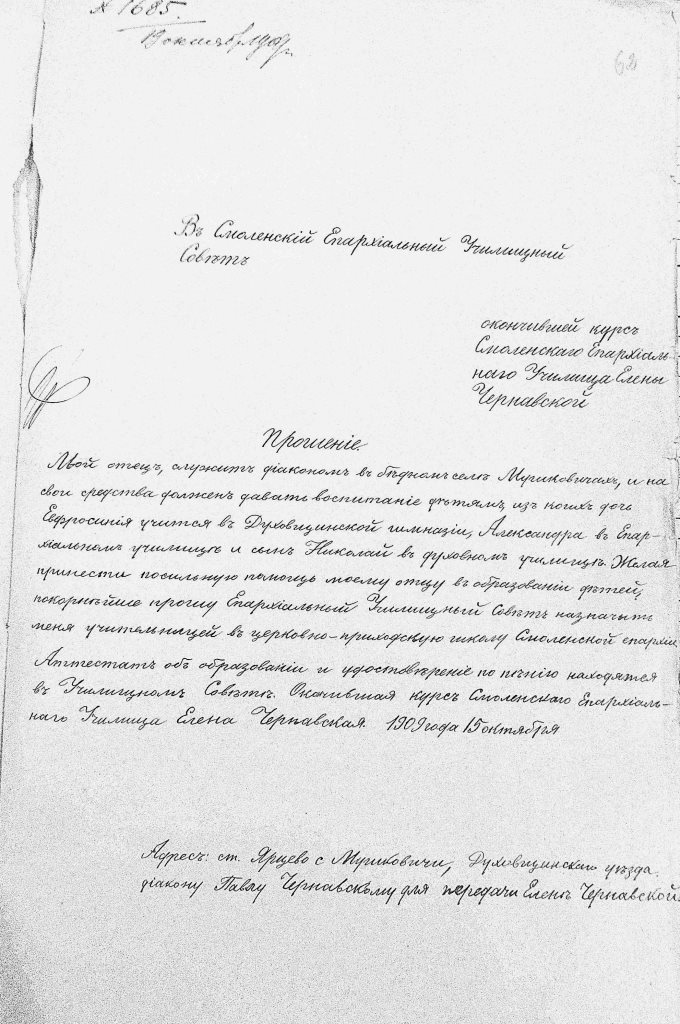 № 1685.
19 октября 1909 г.
62
Въ Смоленскій Епархіальный Училищный
Совѣтъ
окончившей курсъ
Смоленскаго Епархіаль-
наго Училища Елены
Чернавской
Прошеніе.
Мой отецъ, служитъ діакономъ въ бѣдномъ селѣ Мушковичахъ, и на
свои средства долженъ давать воспитаніе дѣтямъ, изъ коихъ дочь
Евфросинія учится въ Духовщинской гимназіи, Александра въ Епар-
хіальномъ училищѣ и сынъ Николай въ духовномъ училищѣ. Желая
принести посильную помощь моему отцу въ образованіи дѣтей,
покорнѣйше прошу Епархіальный Училищный Совѣтъ назначить
меня учительницей въ церковно-приходскую школу Смоленской епархіи.
Аттестатъ объ образованіи и удостовѣреніе по пѣнію находятся
въ Училищномъ Совѣтѣ. Окончившая курсъ Смоленскаго Епархіаль-
наго Училища Елена Чернавская. 1909 года 15 октября
Адресъ: ст. Ярцево с Мушковичи, Духовщинскаго уѣзда.
діакону Павлу Чернавскому для передачи Еленѣ Чернавской.